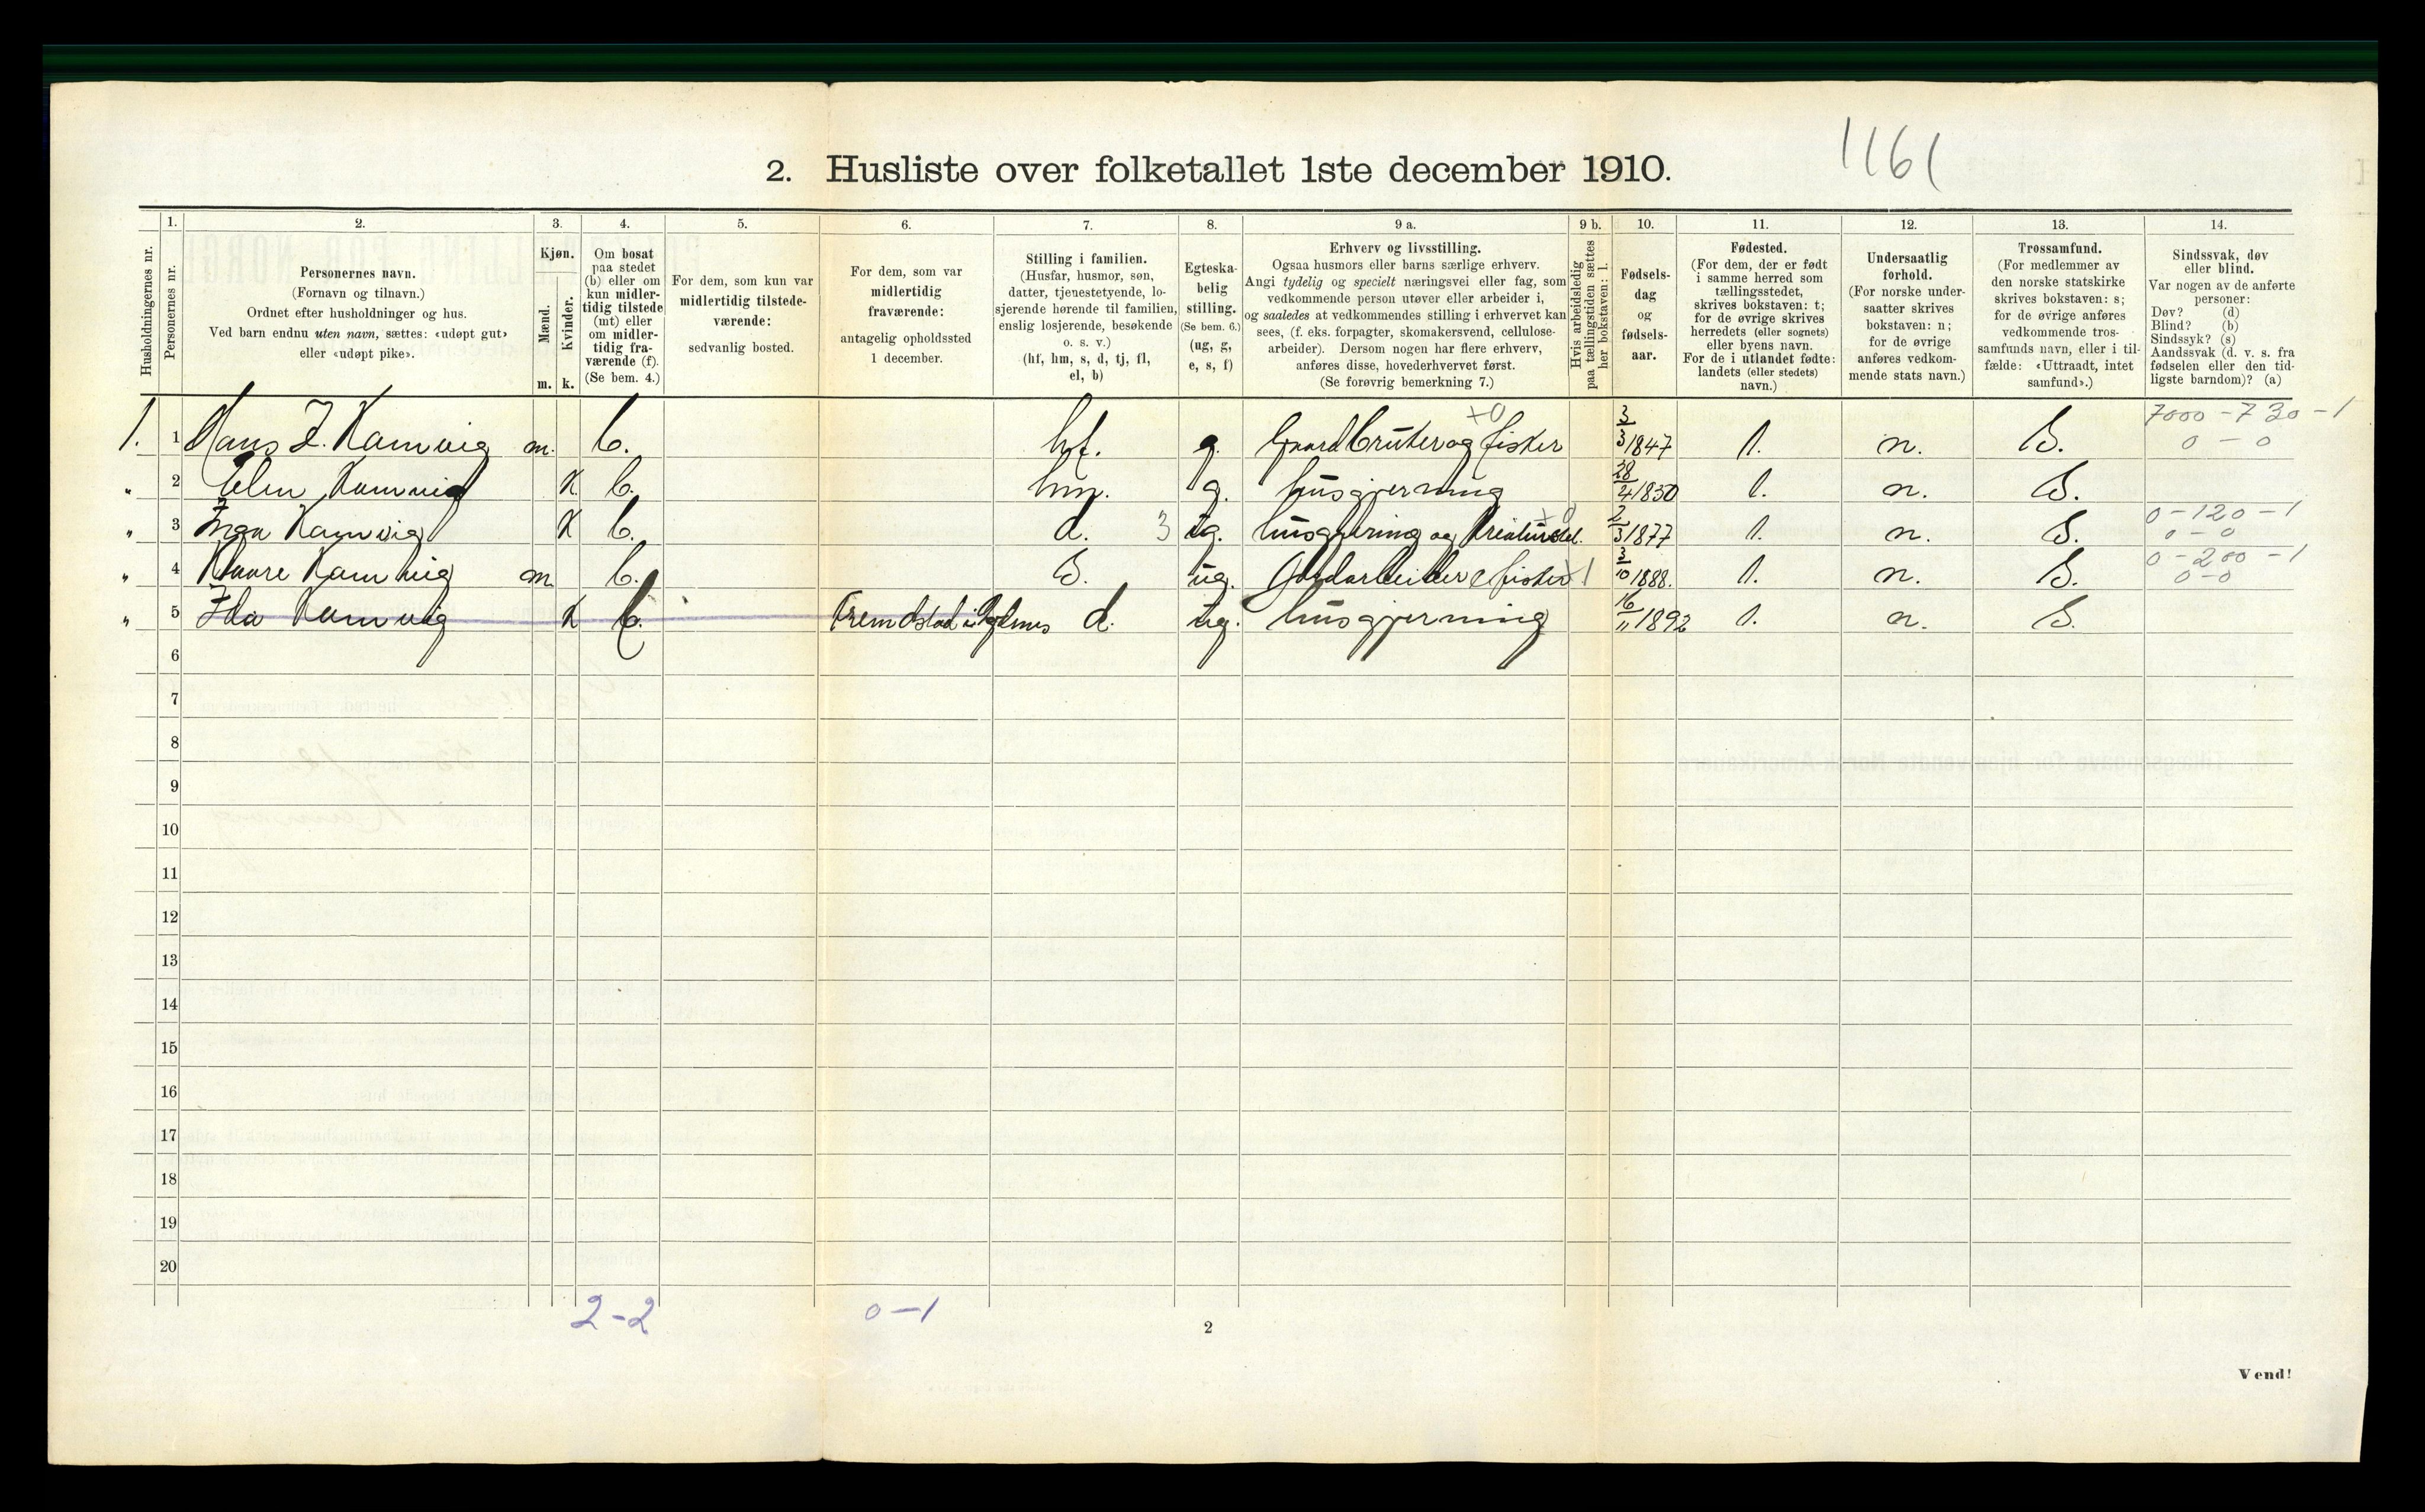 1161
2. Husliste over folketallet 1ste december 1910.
1. 2. 3. 4. 5. 6. 7. 8. 9 a. 9 b. 10. 11. 12. 13. 14.
Husholdningernes nr.
Personernes nr.
Personernes navn.
(Fornavn og tilnavn.)
Ordnet efter husholdninger og hus.
Ved barn endnu uten navn, sættes: «udøpt gut»
eller «udøpt pike».
Kjøn.
Mænd.
Kvinder.
m. k.
Om bosat
paa stedet
(b) eller om
kun midler-
tidig tilstede
(mt) eller
om midler-
tidig fra-
værende (f).
(Se bem. 4.)
For dem, som kun var
midlertidig tilstede-
værende:
sedvanlig bosted.
For dem, som var
midlertidig
fraværende:
antagelig opholdssted
1 december.
Stilling i familien.
(Husfar, husmor, søn,
datter, tjenestetyende, lo-
sjerende hørende til familien,
enslig losjerende, besøkende
o. s. v.)
(hf, hm, s, d, tj, fl,
el, b)
Egteska-
belig
stilling.
(Se bem. 6.)
(ug, g,
e, s, f)
Erhverv og livsstilling.
Ogsaa husmors eller barns særlige erhverv.
Angi tydelig og specielt næringsvei eller fag, som
vedkommende person utøver eller arbeider i,
og saaledes at vedkommendes stilling i erhvervet kan
sees, (f. eks. forpagter, skomakersvend, cellulose-
arbeider). Dersom nogen har flere erhverv,
anføres disse, hovederhvervet først.
(Se forøvrig bemerkning 7.)
Hvis arbeidsledig
paa tællingstiden sættes
her bokstaven: l.
Fødsels-
dag
og
fødsels-
aar.
Fødested.
(For dem, der er født
i samme herred som
tællingsstedet,
skrives bokstaven: t;
for de øvrige skrives
herredets (eller sognets)
eller byens navn.
For de i utlandet fødte:
landets (eller stedets)
navn.)
Undersaatlig
forhold.
(For norske under-
saatter skrives
bokstaven: n;
for de øvrige
anføres vedkom-
mende stats navn.)
Trossamfund.
(For medlemmer av
den norske statskirke
skrives bokstaven: s;
for de øvrige anføres
vedkommende tros-
samfunds navn, eller i til-
fælde: «Uttraadt, intet
samfund».)
Sindssvak, døv
eller blind.
Var nogen av de anførte
personer:
Døv? (d)
Blind? (b)
Sindssyk? (s)
Aandssvak (d. v. s. fra
fødselen eller den tid-
ligste barndom)? (a)
x0 7000-730-1
1. 1 Hans J. Kamvig m. b. hf. g. Gaardbruker og fisker 3/3 1847 t. n. S. 0-0
" 2 Elen Kamvig K b. hm. g. husgjerning 28/4 1850 t. n. S.
x0 0-120-1
" 3 Inga Kamvig K b. d. 3 ug. husgjerning og kreaturstel. 2/3 1877 t. n. S. 0-0
0-200-1
" 4 Kaare Kamvig m b. S. ug. Gaardarbeider & fisker x1 3/10 1888. t. n. S. 0-0
" 5 Ida Kamvig K b. d. ug. husgjerning 16/11 1892 t. n. S.
6
7
8
9
10
11
12
13
14
15
16
17
18
19
20
2-2 0-1
2
Vend!